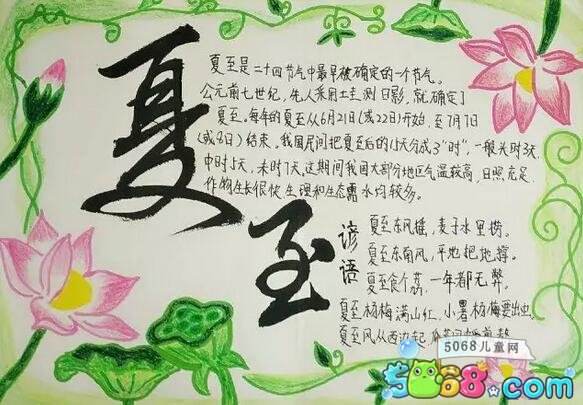 夏至
夏至是二十四节气中最早被确定的一个节气。
公元前七世纪,先人采用土圭测日影,就确定了
夏至。每年的夏至从6月21日(或22日)开始,至7月7日
(或8日)结束。我国民间把夏至后的15天分成3"时",一般头时3天
中时5天,末时7天,这期间我国大部分地区气温较高,日照充足,
作物生长很快,生理和生态需水均较多。
谚语
夏至东风摇,麦子水里捞。
夏至东南风,平地把船撑。
夏至食个荔,一年都无弊。
夏至杨梅满山红,小暑杨梅要出虫。
夏至风从西边起,
5068儿童网
5068.com